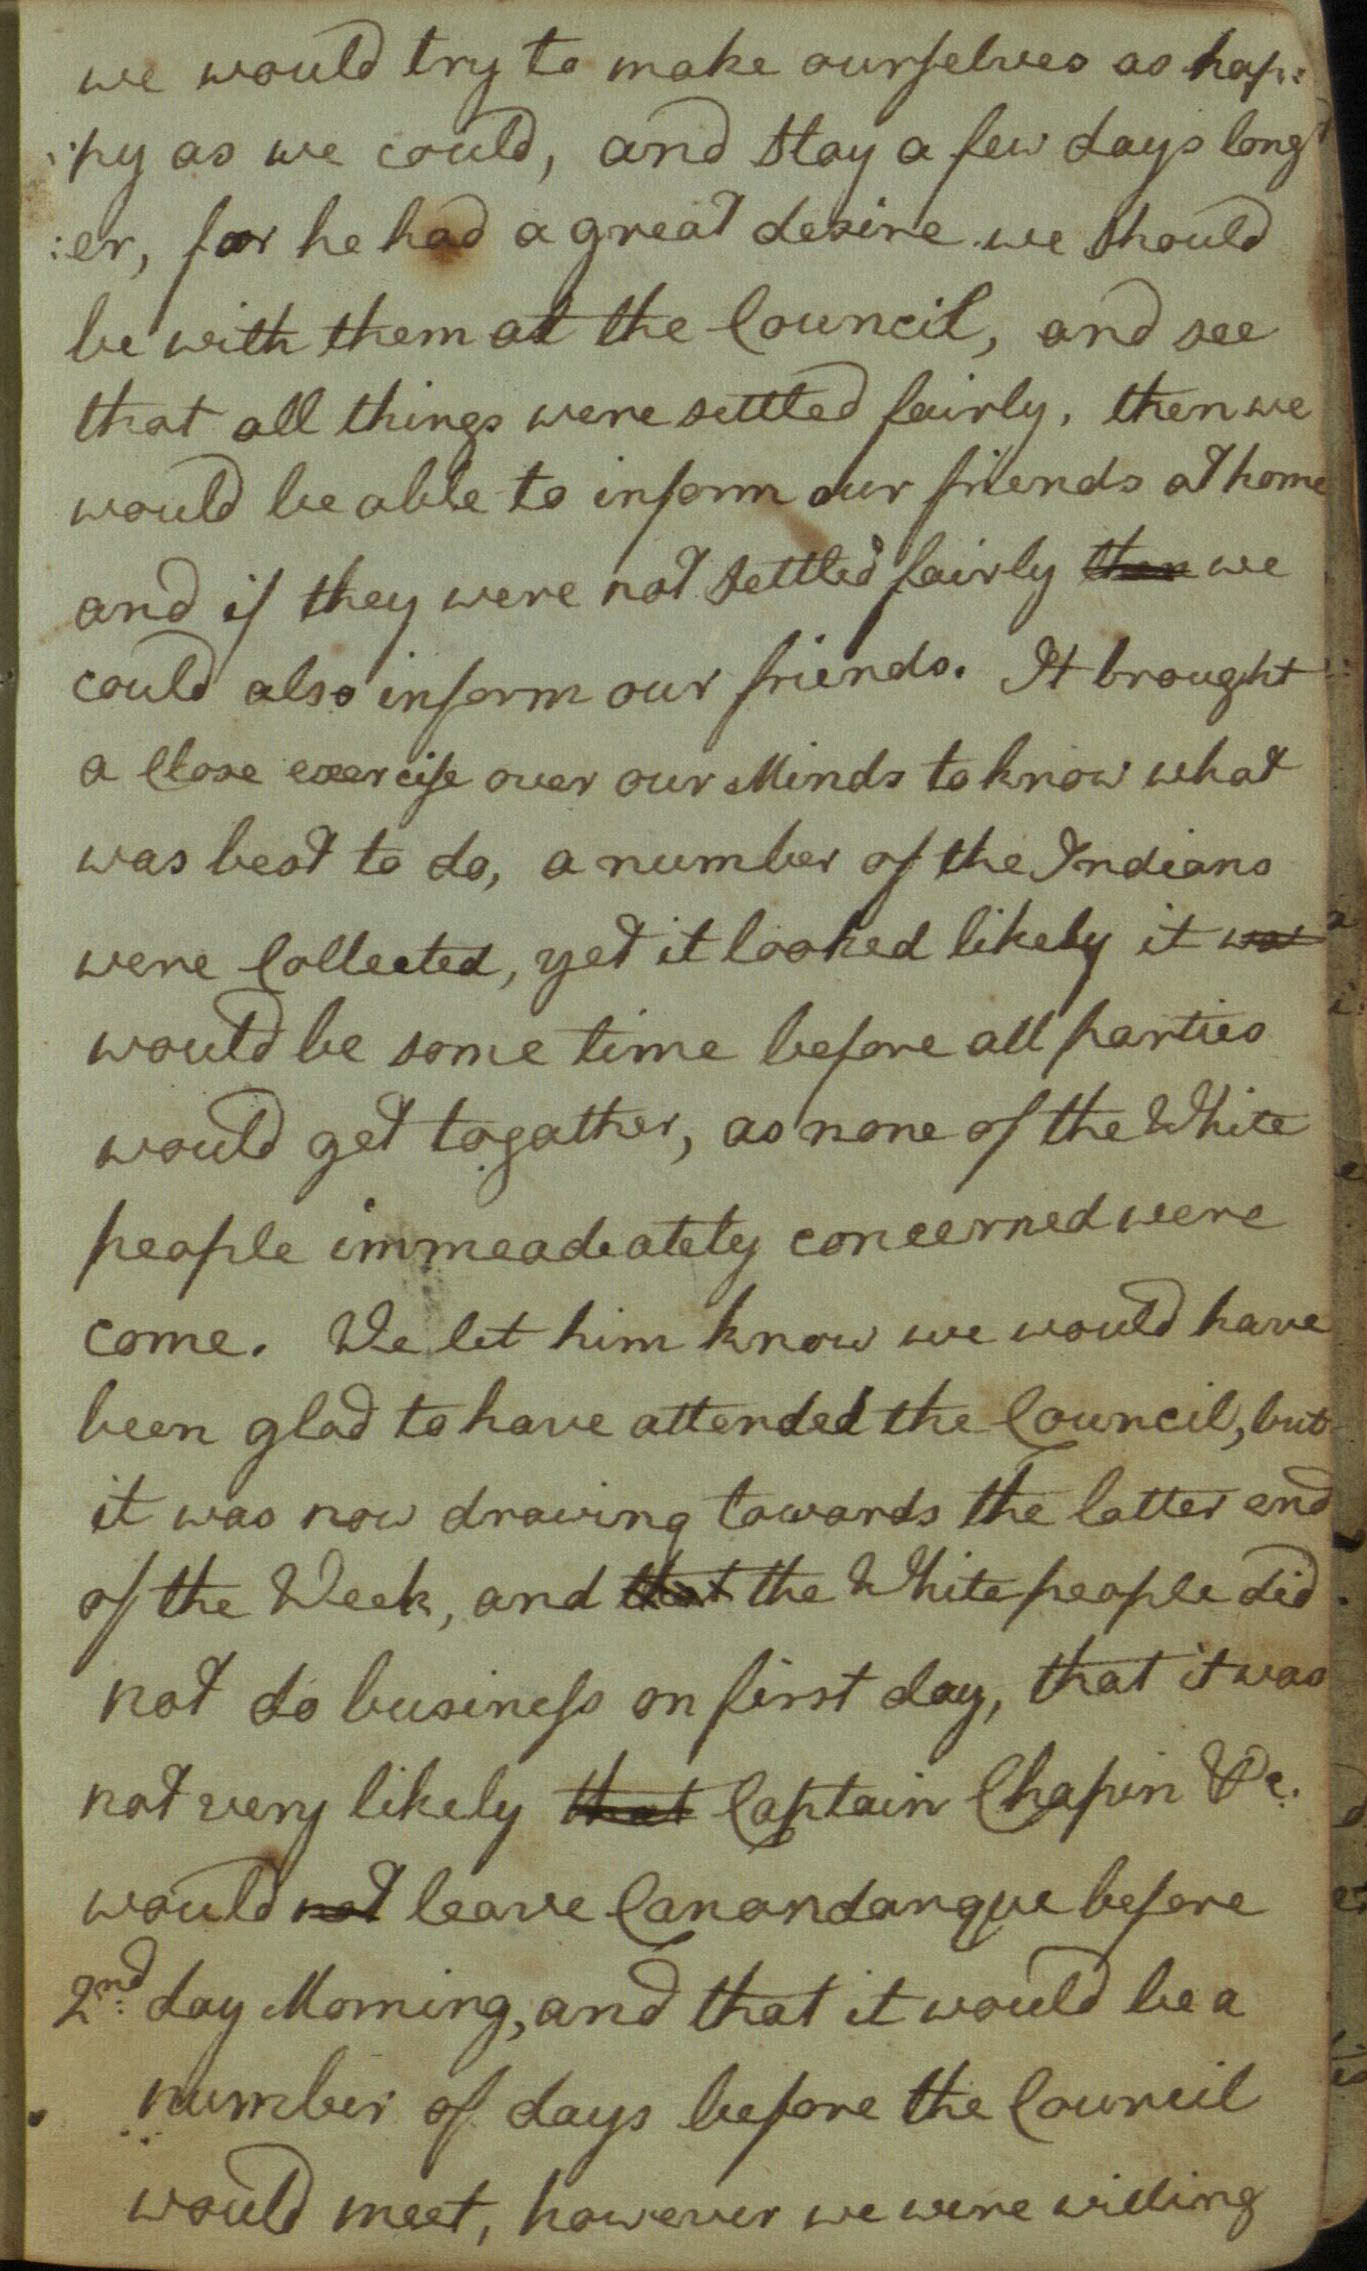 we would try to make ourselves as hap:
:py as we could, and stay a few days long
:er, for he had a great desire we should
be with them at the Council, and see
that all things were settled fairly, then we
would be able to inform our friends at home
and if they were not settled fairly then we
could also inform our friends. It brought
a Close exercise over our Minds to know what
was best to do, a number of the Indians
were Collected, yet it looked likely it was
would be some time before all parties
would get togather, as none of the White
people immeadeatety concerned were
come. We let him know we would have
been glad to have attended the Council, but
it was now drawing towards the latter end
of the Week, and that the White people did
not do business on first day, that it was
not very likely that Captain Chapin &c.
would not leave Canandanque before
2nd day Morning, and that it would be a
number of days before the Council
would meet, however we were willing